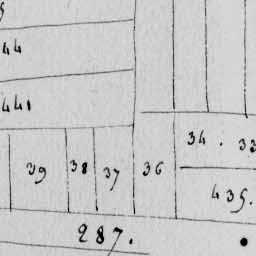 44
441
34 . 33
39 38 37 36
435.
287.